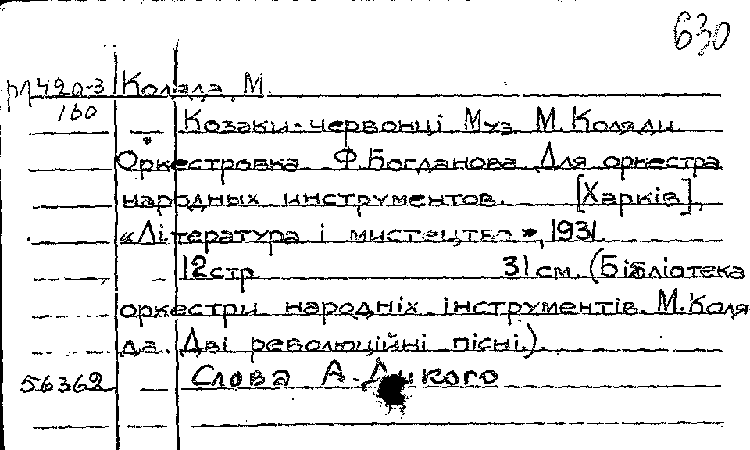 630
М 420-3 Коляда, М.
160
Козаки-червонці. Муз. М. Коляди.
Оркестровка Ф. Богданова. Для оркестра
народных инструментов. [Харків],
«Література і мистецтво», 1931.
12 стр. 31 см. (Бібліотека
оркестри народніх інструментів. М. Коля
да. Дві революційні пісні.)
56362 Слова А. Дикого